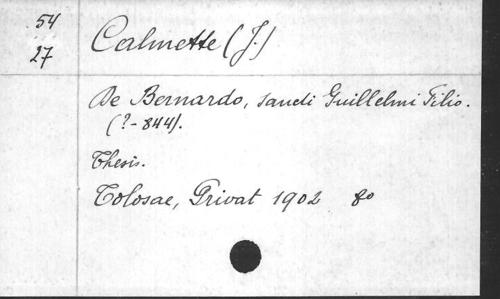 54
27
Calmette (J.)
De Bernardo, sancti Guillelmi Filio.
(?-844).
Thesis.
Tolosae, Privat 1902 8o